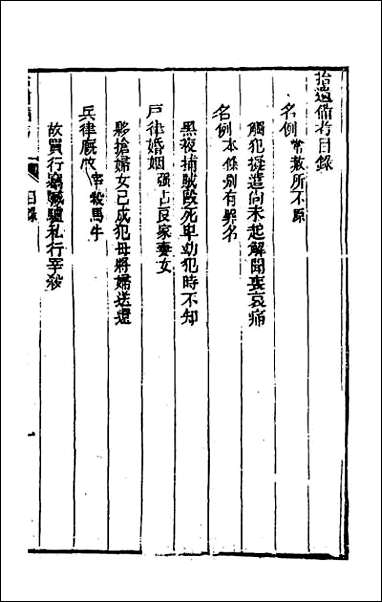 拾遺備考目錄
名例 常赦所不原
竊犯擬遣尚未起解聞喪哀痛
名例 本條別有罪名
黑夜捕賊毆死卑幼犯時不知
戸律婚姻 强占良家妻女
夥搶婦女已成犯母將婦送還
兵律厩牧 宰殺馬牛
故買行竊贓驢私行宰殺
目錄
一